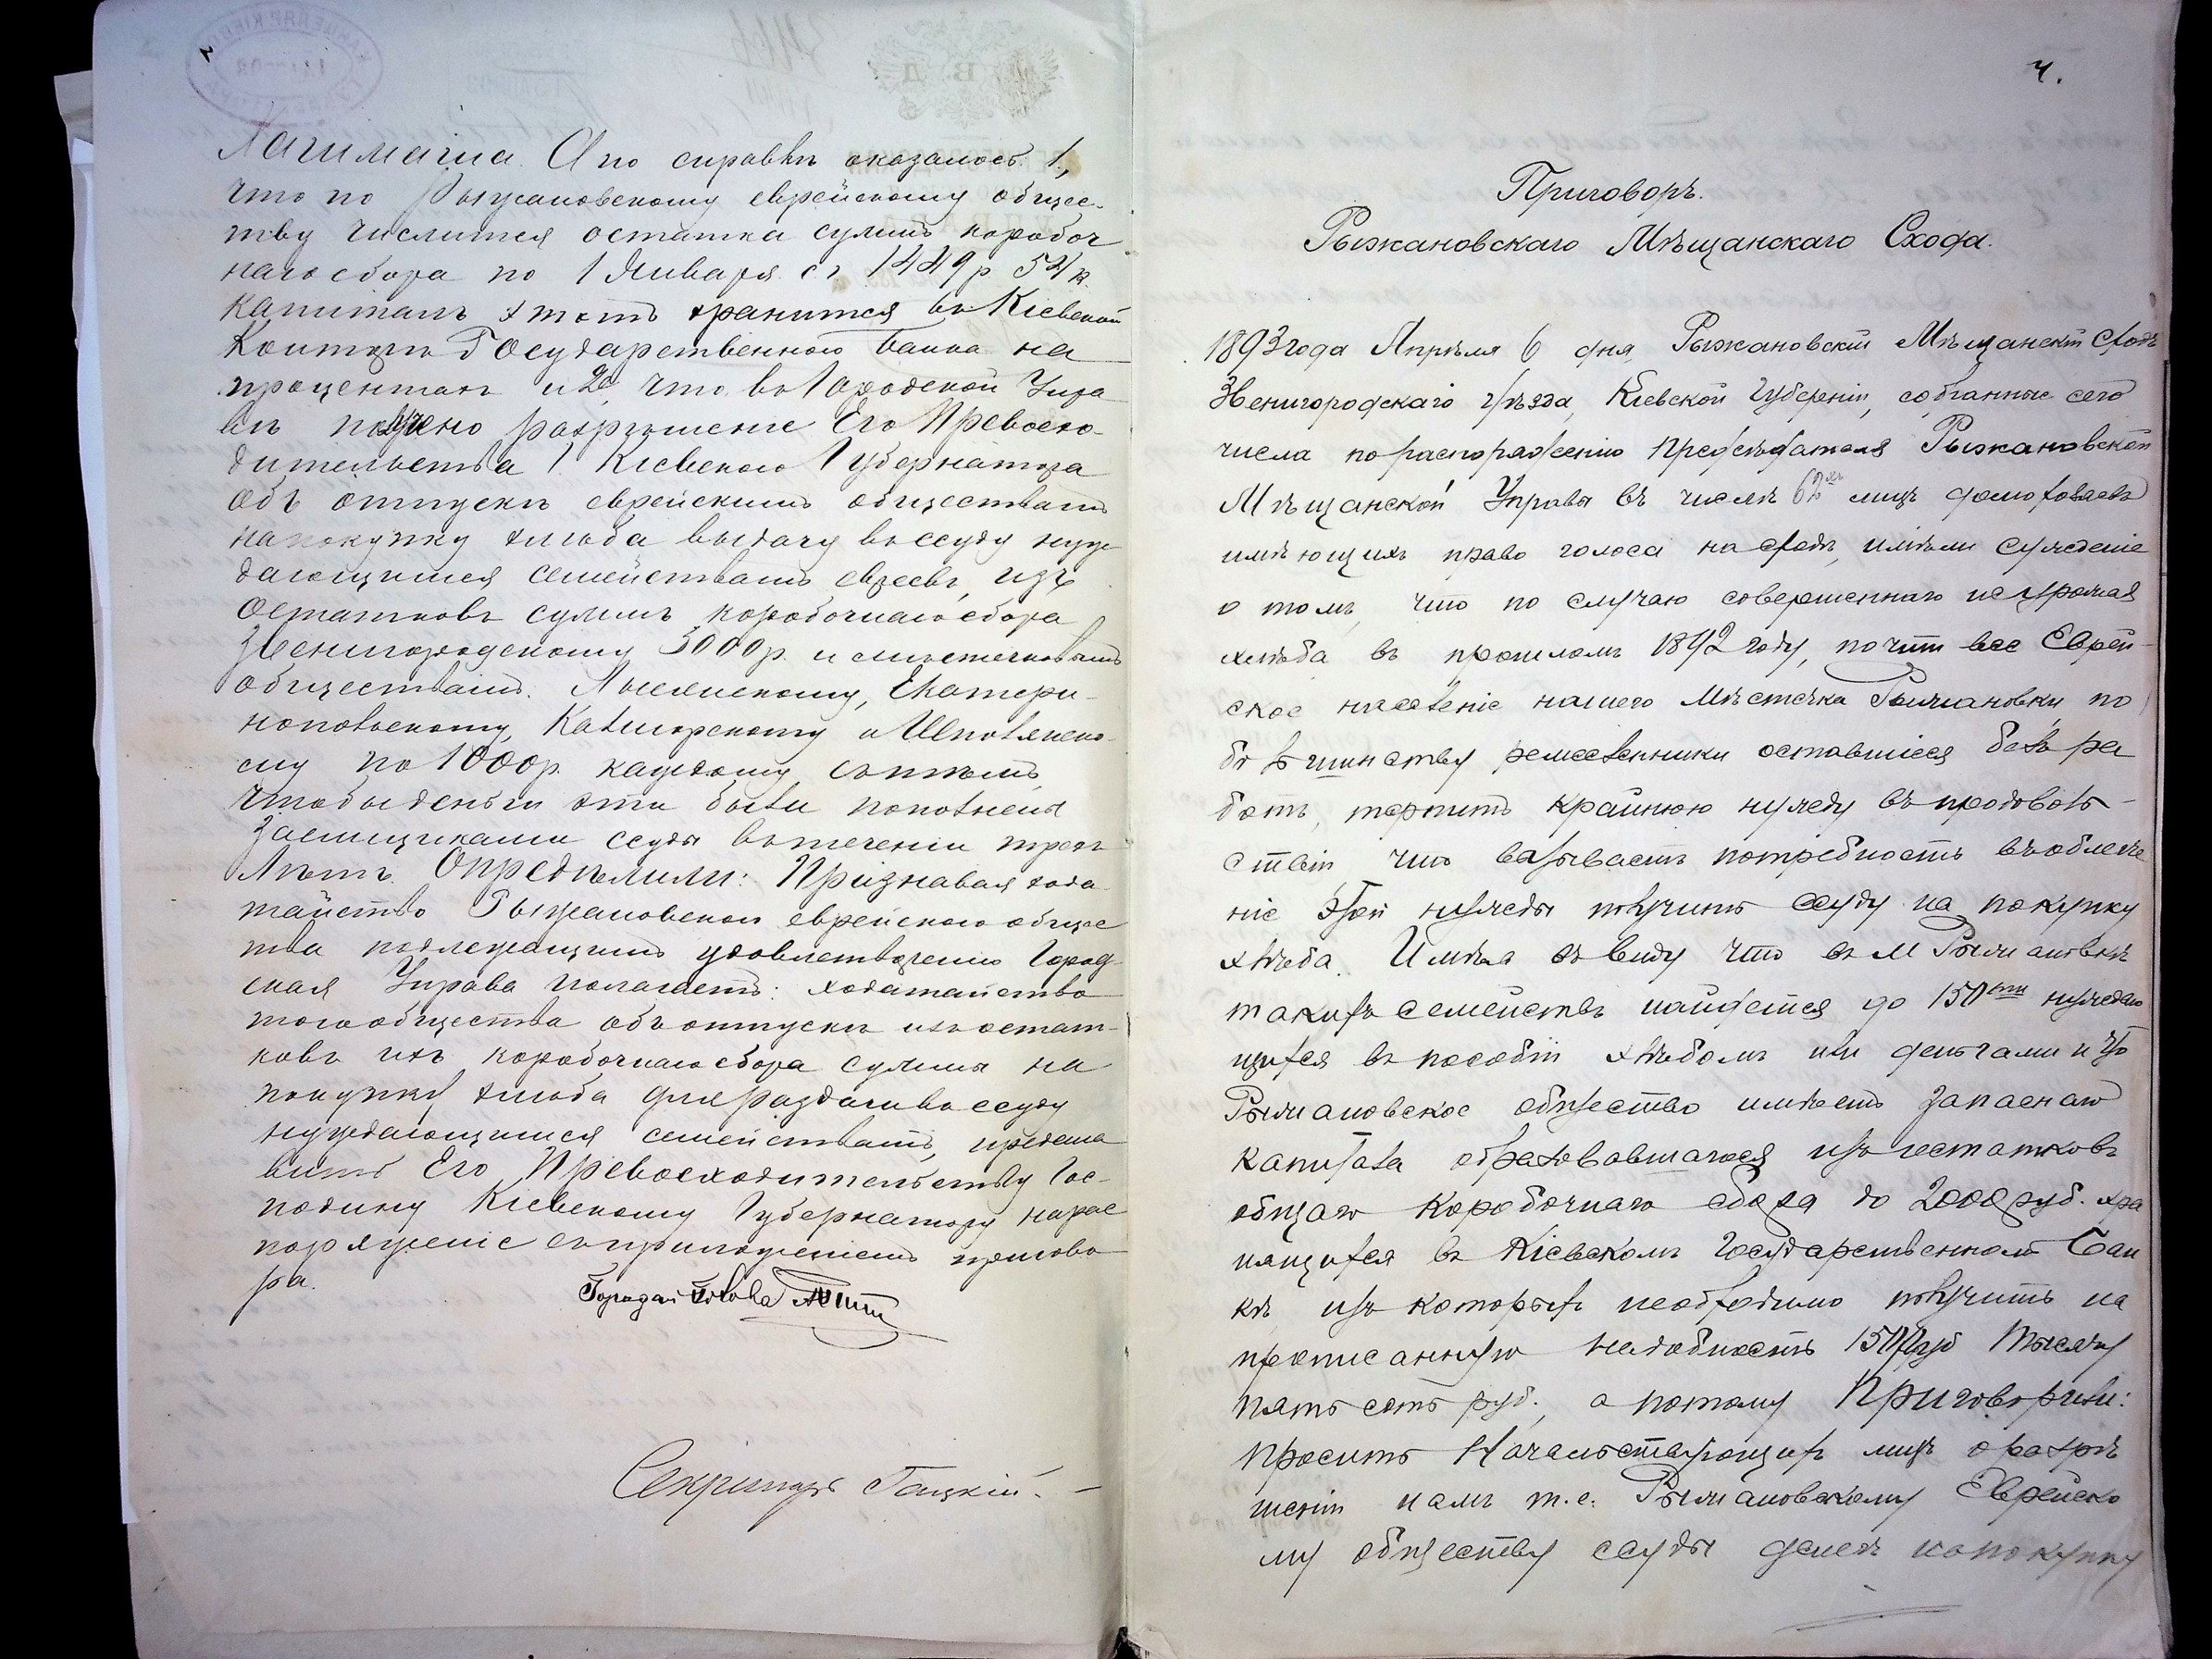 А по справкѣ оказалось: 1,
что по Рыжановскому еврейскому общес-
тву числится остатка суммъ коробоч
наго сбора по 1 Января с. г. 1449 р. 54 к.
капиталъ этотъ хранится въ Кіевской
Конторѣ Государственнаго банка на
процентахъ и 2е, что въ Городской Упра
вѣ получено разрѣшеніе Его Превосхо-
дительства Г. Кіевскаго Губернатора
объ отпускѣ еврейскимъ обществамъ
на покупку хлѣба выдачу въ ссуду нуж
дающимся семействамъ евреевъ, изъ
остатковъ суммъ коробочнаго сбора
Звенигородскому 3000 р. и мѣстечковымъ
обществамъ: Лысянскому, Екатери-
нопольскому, Калигорскому и Шполянско-
му по 1000 р. каждому, съ тѣмъ,
чтобы деньги эти были пополнены
заемщиками ссуды въ теченіи трехъ
лѣтъ. Опредѣлили: Признавая хода-
тайство Рыжановскаго еврейскаго общес
тва подлежащимъ удовлетворенію Город-
ская Управа полагаетъ: ходатайство
того общества объ отпускѣ изъ остат-
ковъ ихъ коробочнаго сбора суммы на
покупку хлѣба для раздачи въ ссуду
нуждающимся семействамъ, предста
вить Его Превосходительству Гос-
подину Кіевскому Губернатору на рас
поряженіе съ приложеніемъ пригово
ра.
Городской Голова
Секретарь
4.
Приговоръ.
Рыжановскаго Мѣщанскаго Схода.
1893 года Апрѣля 6 дня, Рыжановскій Мѣщанскій Сходъ
Звенигородскаго уѣзда, Кіевской Губерніи, собранные сего
числа по распоряженію Предсѣдателя Рыжановской
Мѣщанской Управы въ числѣ 62 лицъ домохозяевъ
имѣющихъ право голоса на сходѣ, имѣли сужденіе
о томъ, что по случаю совершеннаго неурожая
хлѣба въ прошломъ 1892 году, почти все Еврей-
ское населеніе нашего Мѣстечка Рыжановки, по
большинству ремесленники оставшіеся безъ ра
ботъ, терпитъ крайнюю нужду въ продоволь-
ствіи, что вызываетъ потребность въ облегче
ніе этой нужды получить ссуду на покупку
хлѣба. Имѣя въ виду что въ М Рыжановкѣ
такихъ семействъ найдется до 150ти нуждаю
щихся въ пособіи хлѣбомъ или деньгами и что
Рыжановское общество имѣетъ запаснаго
капитала образовавшагося изъ остатковъ
общаго коробочнаго сбора до 2000 руб. хра
нящихся въ Кіевскомъ Государственномъ Бан
кѣ, изъ которыхъ необходимо получить на
прописанную надобность 1500 руб тысячу
пять сотъ руб., а потому Приговорили:
просить Начальствующихъ лицъ о разрѣ
шеніи намъ т.е. Рыжановскому Еврейско
му обществу ссуды денегъ на покупку